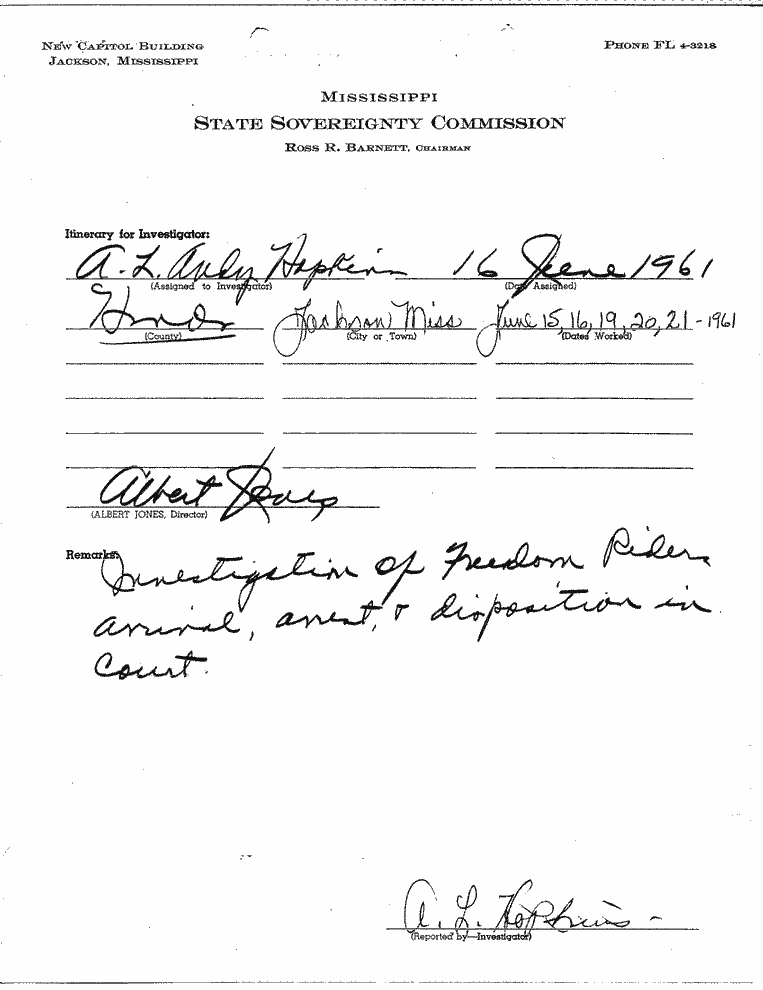 NEW CAPITOL BUILDING PHONE FL 4-3218
JACKSON, MISSISSIPPI
MISSISSIPPI
STATE SOVEREIGNTY COMMISSION
ROSS R. BARNETT, CHAIRMAN
Itinerary for Investigator:
A. L. Andy Hopkins 16 June 1961
(Assigned to Investigator) (Date Assigned)
Hinds Jackson Miss June 15, 16, 19, 20, 21 - 1961
(County) (City or Town) (Dates Worked)
Albert Jones
(ALBERT JONES, Director)
Remarks: Investigation of Freedom Riders
arrival, arrest, & disposition in
Court.
A. L. Hopkins -
(Reported by—Investigator)